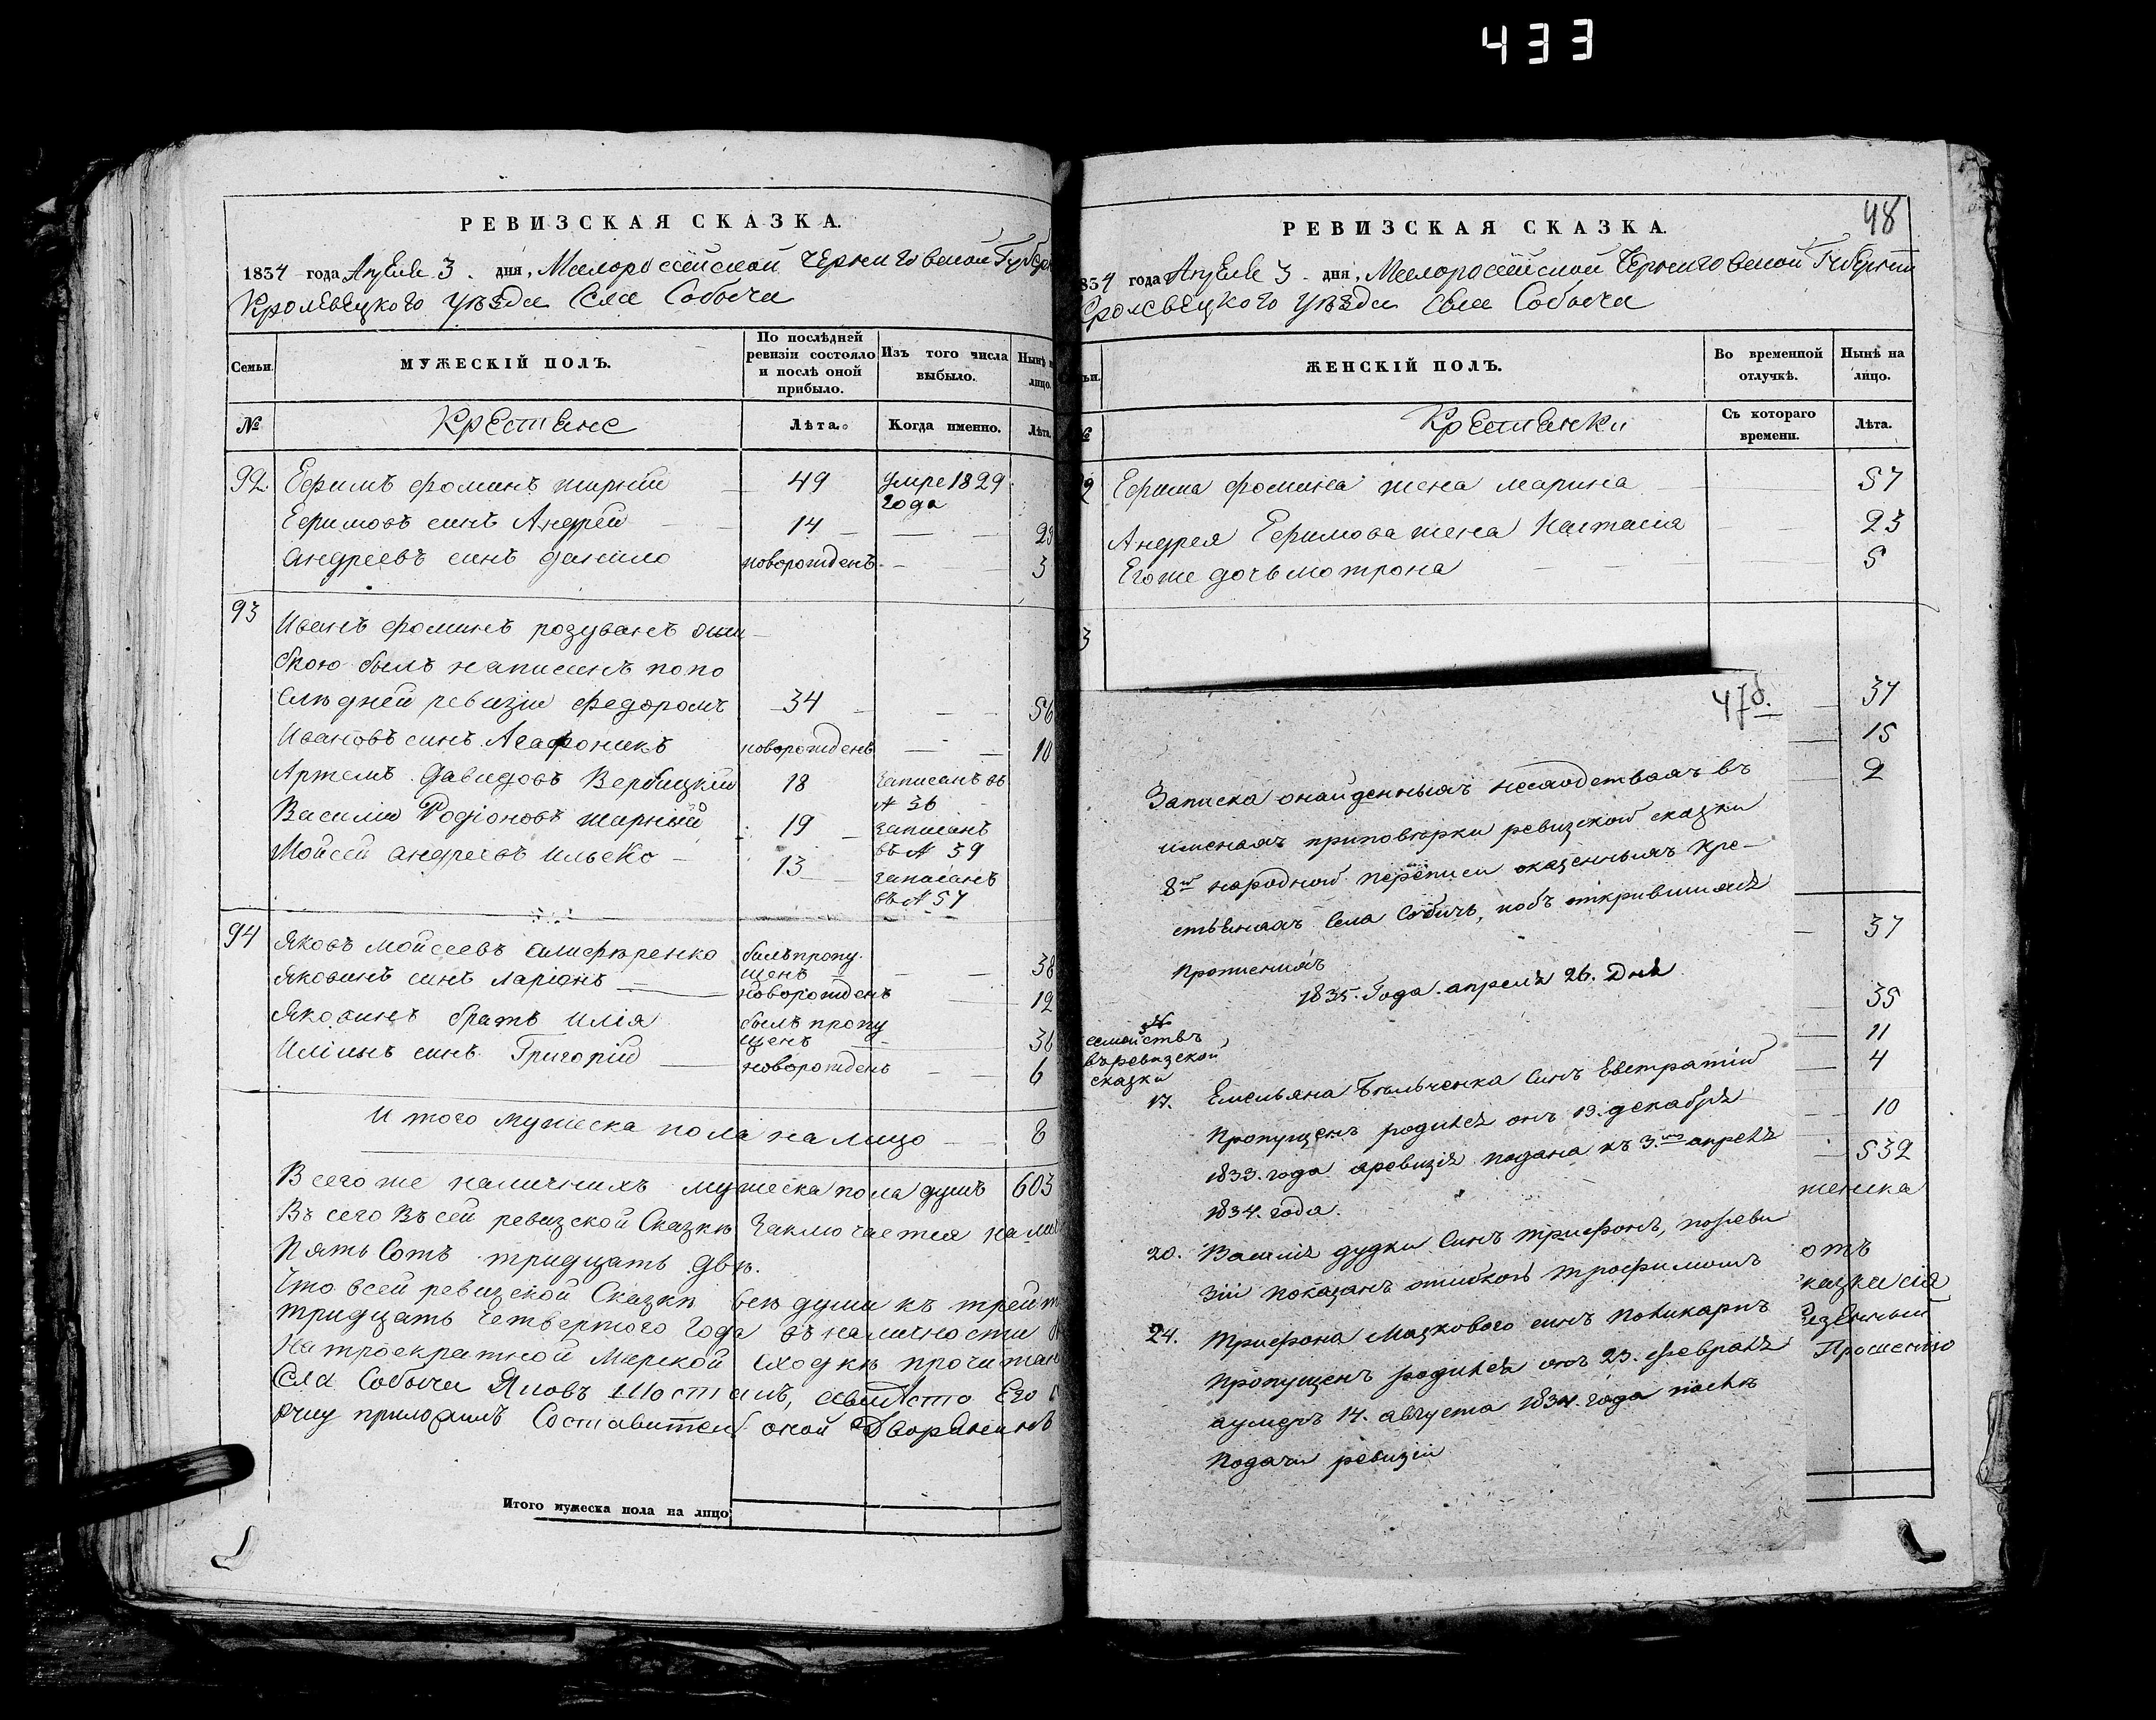 433
РЕВИЗСКАЯ СКАЗКА.
1834 года Апреле 3. дня, Малоросійской Черниговской Губер
Кролевецкого уѣзда Села Собыча
Семьи. МУЖЕСКІЙ ПОЛЪ. По послѣдней ревизіи состояло и послѣ оной прибыло. Изъ того числа выбыло. Нынѣ н лицо.
№ Крестяне Лѣта. Когда именно. Лѣта.
92. Ефимъ Фоминъ жирній 49 умре 1829 года
Ефимовъ синъ Андрей 14
Андреевъ синъ Данило новорожденъ 3
93 Иванъ Фоминъ розуванъ оши
бкою былъ написанъ по по
слѣдней ревизіи Федоромъ 34 56
Ивановъ синъ Агафоникъ новорожденъ 10
Артемъ Давидовъ Вербицкій 18 записанъ въ № 36
Василій Родіоновъ жирный 19 записанъ въ № 39
Мойсей Андреевъ Илько 13 записанъ въ № 57
94 Яковъ Мойсеевъ Алиференко былъ пропу щенъ 38
Яковинъ синъ Ларіонъ новорожденъ 12
Яковинъ братъ Илія былъ пропу щенъ 36
Иліинъ синъ Григорій новорожденъ 6
Итого мужеска пола на лицо 8
Всего же наличнихъ мужеска пола душъ 603
Въ сего Въ сей ревизской Сказкѣ Заключается нали
Пять Сотъ тридцать двѣ.
Что всей ревизской Сказкѣ всѣ души къ трей
тридцать четвертого Года въ наличности
На троекратной Мирской сходкѣ прочитан
Села Собычи Яковъ Шосталъ, а вмѣсто Его
руку приложилъ Составитель оной Дворянинъ
Итого мужеска пола на лицо
48
РЕВИЗСКАЯ СКАЗКА.
834 года Апреле 3. дня, Малоросійской Черниговской Губерніи
Кролевецкого уѣзда Села Собыча
ьи. ЖЕНСКІЙ ПОЛЪ. Во временной отлучкѣ. Нынѣ на лицо.
№ Крестянки Съ котораго времени. Лѣта.
2 Ефима Фомина жена Марина 57
Андрея Ефимова жена Настасія 23
Его же дочь Мотрона 5
3
37
15
2
37
35
11
4
10
532
женска
отъ
казка сія
Прошению
47б.
Записка о найденныхъ несходствахъ въ
именахъ при повѣрки ревизской сказки
8й народной переписи казенныхъ Кре-
стьянахъ Села Собичъ, по объ открившихся
Пропискахъ
1835. Года. апреля 26. Дня
№ семействъ въ ревизской сказки
17. Емельяна Бѣльченка синъ Евстратій
Пропущенъ родился онъ 13. декабря
1833. года а ревизія подана къ 3.му апрелѣ
1834. года.
20. Василія дудки Синъ Трифонъ, по реви
зіи показанъ ошибкою Трофимомъ
24. Трифона Мазкового синъ Поликарпъ
Пропущенъ родился онъ 23. февраля
а умеръ 14. августа 1834. года послѣ
Подачи ревизіи